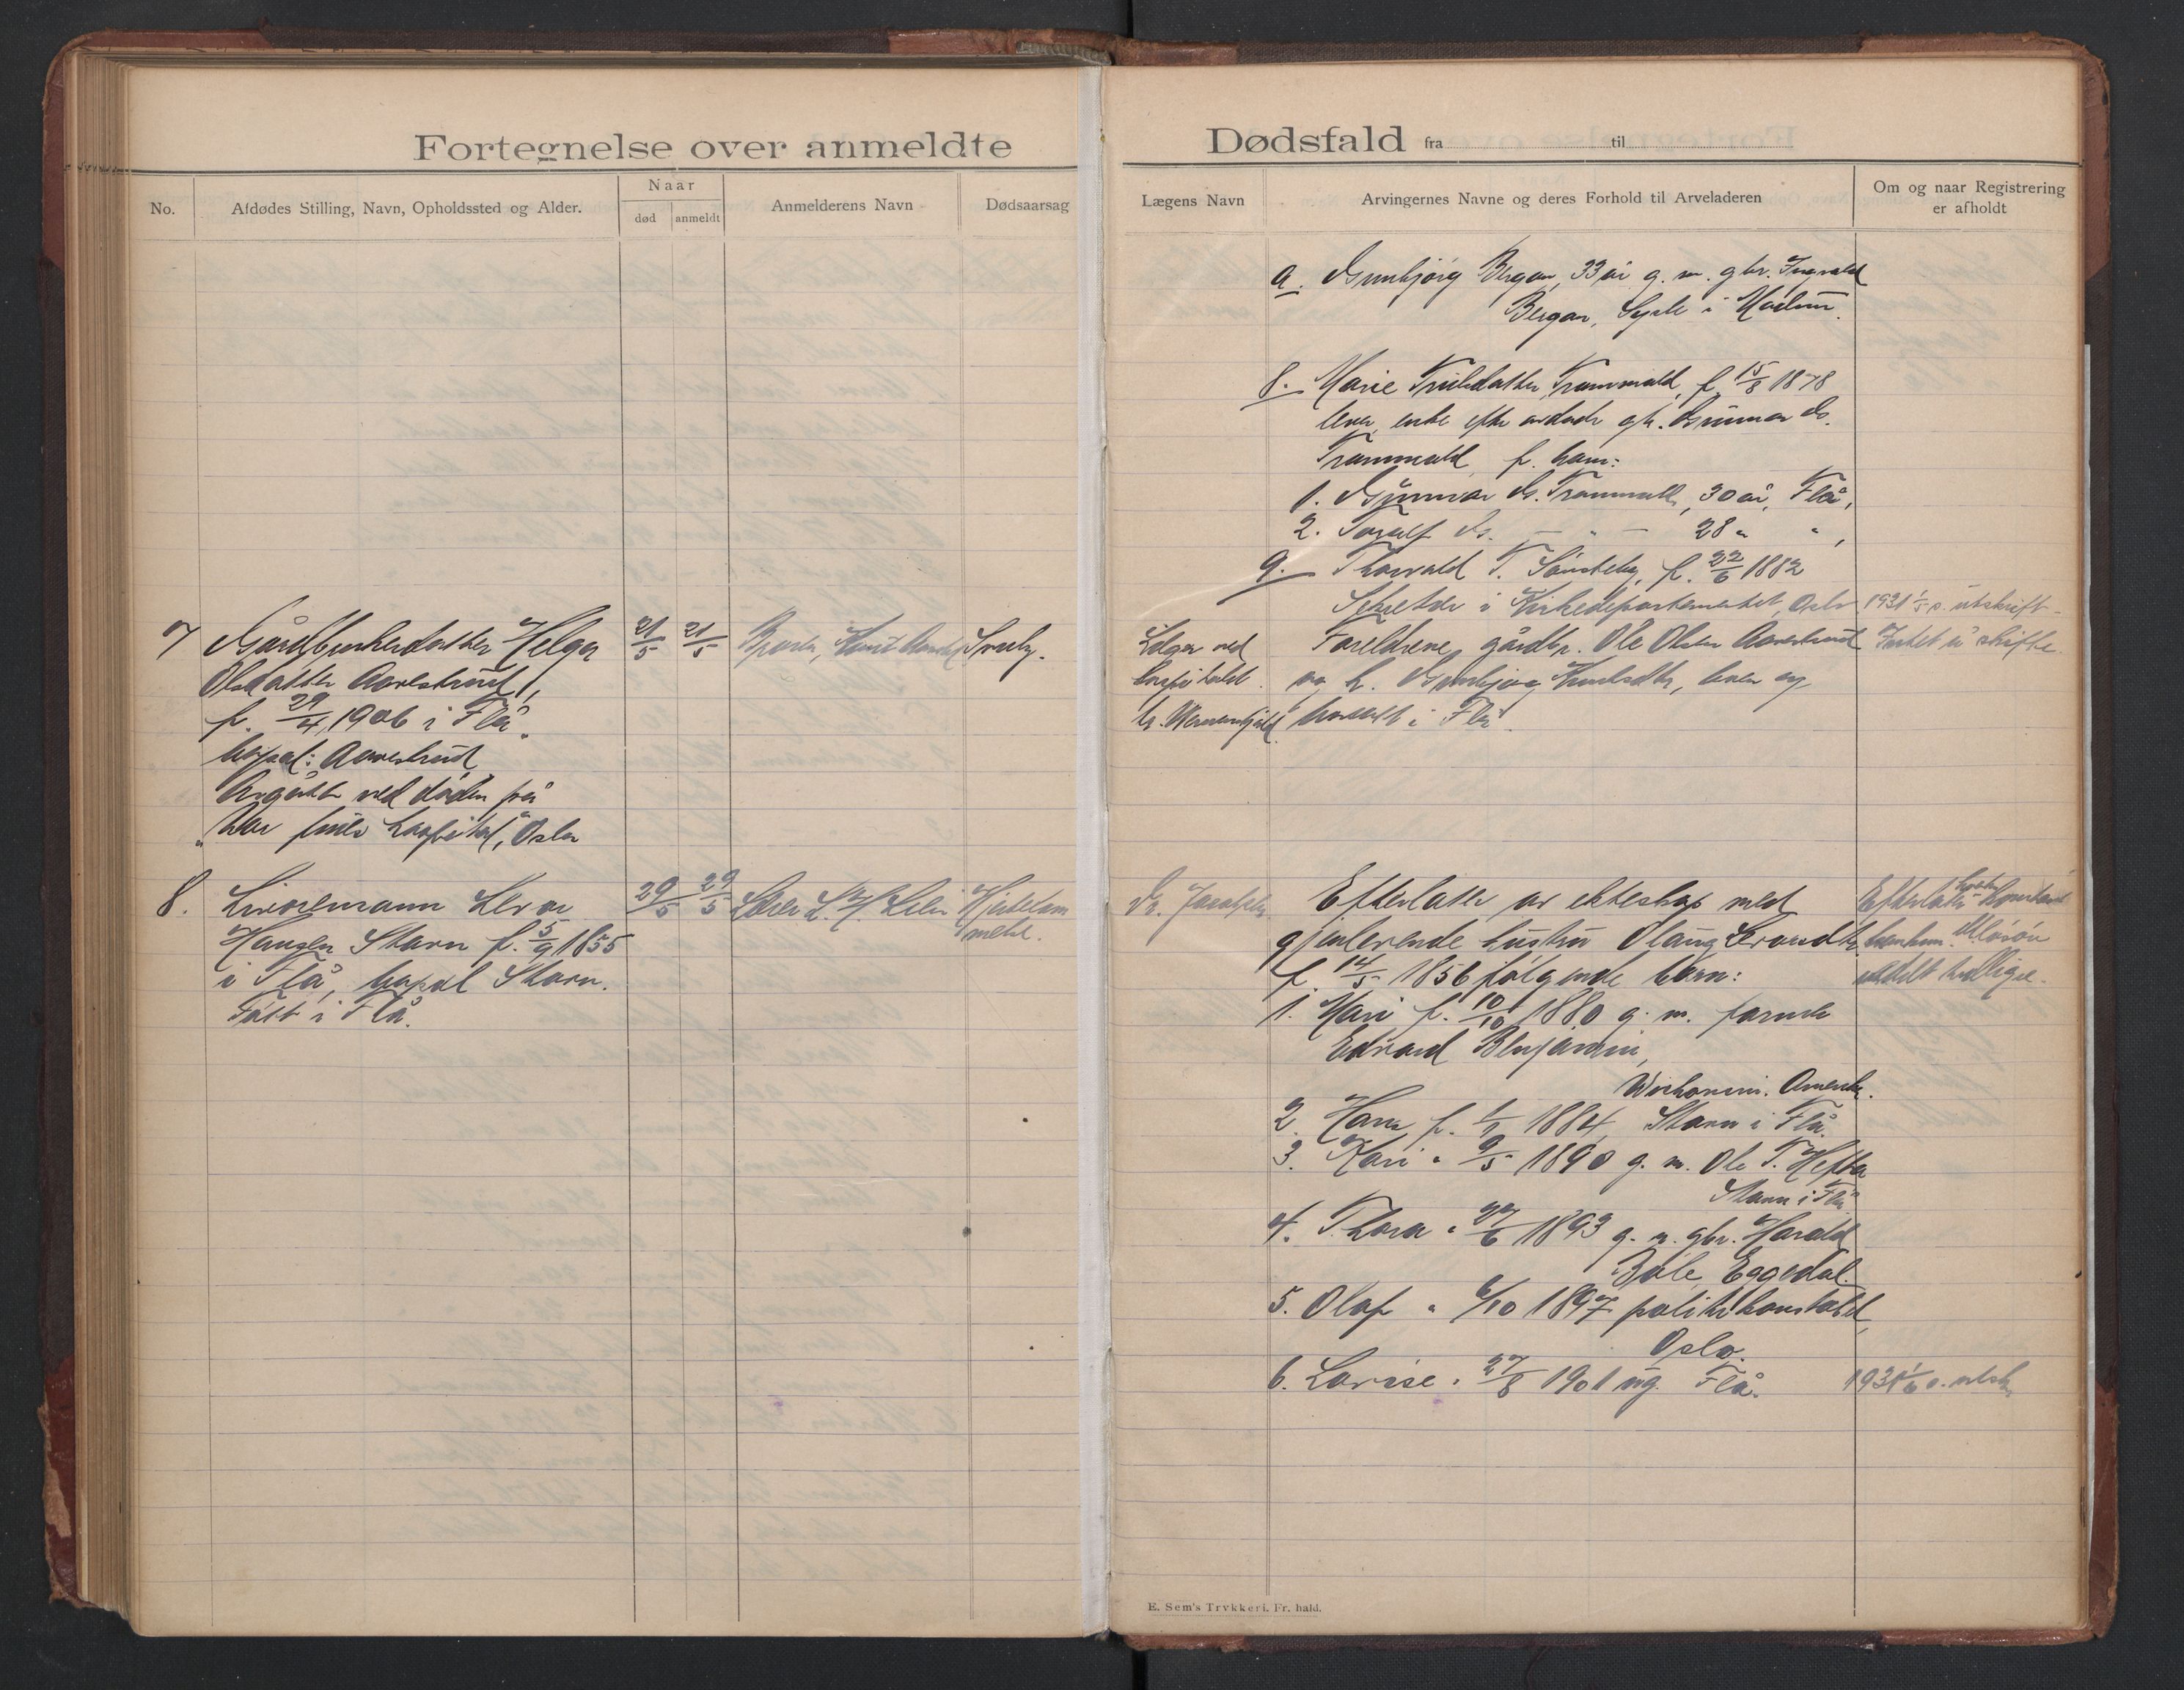 Fortegnelse over anmeldte
No.
Afdødes Stilling, Navn, Opholdssted og Alder.
Naar
død
anmeldt
Anmelderens Navn
Dødsaarsag
7
Gårdbrukerdatter Helga
Olsdatter Aavestrud,
f. 29/4 1906 i Flå
bopæl: Aavestrud
Avgått ved døden på
"Vor frues hospital", Oslo
21/5
21/5
Broren, Knut
8.
Livøremann Levor
Hansen Stavn f. 5/9 1855
i Flå, bopæl Stavn.
Født i Flå.
29/5
29/5
Hjertelam
melse.
Dødsfald fra til
Lægens Navn
Arvingernes Navne og deres Forhold til Arveladeren
Om og naar Registrering
er afholdt
a. Gunbjørg Bergan, 33 år g. m. gbr. Ingvald
Bergan, Sysle i Modum.
8. Marie Trulsdatter Trommald, f. 15/8 1878
lever, enke efter avdøde gbr. Gunnar G.
Trommald f. ham:
1. Gunnar G. Trommald, 30 år, Flå,
2. Toralf G. — " — 28 " ",
9. Thorvald T. Sønsteby, f. 22/6 1882
Sekretær i Kirkedepartementet, Oslo
1931 1/5 s. utskrift.
Læger ved
hospitalet
Foreldrene, gårdbr. Ole Olsen Aavestrud
og h. Gunbjørg Knutsdtr, lever og
bosatt i Flå.
Intet å skifte.
Efterlater av ekteskap med
gjenlevende hustru Olaug Levordtr
f. 14/5 1856 følgende barn:
1. Mari f. 10/10 1880 g. m. farmer
Edvard Benjamin,
Wisconsin. Amerika.
2. Hans f. 1/1 1884, Stavn i Flå.
3. Kari " 9/5 1890 g. m. Ole T. Hefte
Stavn i Flå
4. Thora " 27/6 1893 g. m. gbr. Harald
Bøle, Eggedal.
5. Olaf " 6/10 1897 politikonstabel,
Oslo.
6. Lovise " 27/8 1901 ug. Flå.
1931 1/6 s. utsk.
E. Sem's Trykkeri, Fr. hald.